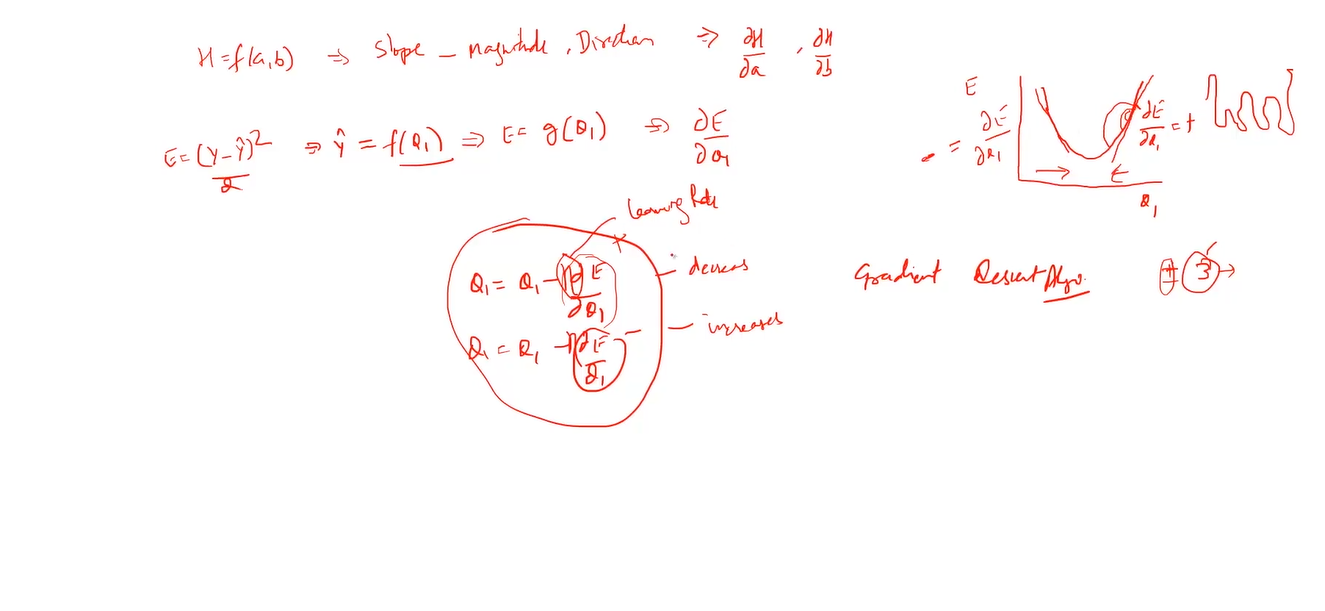 H = f(a,b) ⇒ Slope – Magnitude, Direction ⇒ ∂H/∂a , ∂H/∂b
E = (Y-Ŷ)²/2 ⇒ Ŷ = f(θ₁) ⇒ E = g(θ₁) ⇒ ∂E/∂θ₁
E
- = ∂E/∂θ₁
∂E/∂θ₁ = +
θ₁
Learning Rate
+
θ₁ = θ₁ - η ∂E/∂θ₁ – decreases
θ₁ = θ₁ - η ∂E/∂θ₁ – – increases
Gradient Descent Algo.
± 3 →